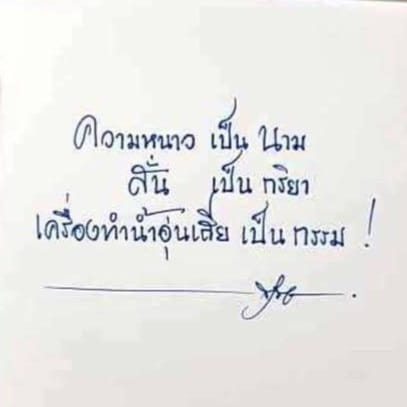 ความหนาว เป็น นาม
สั่น เป็น กริยา
เครื่องทำน้ำอุ่นเสีย เป็น กรรม !